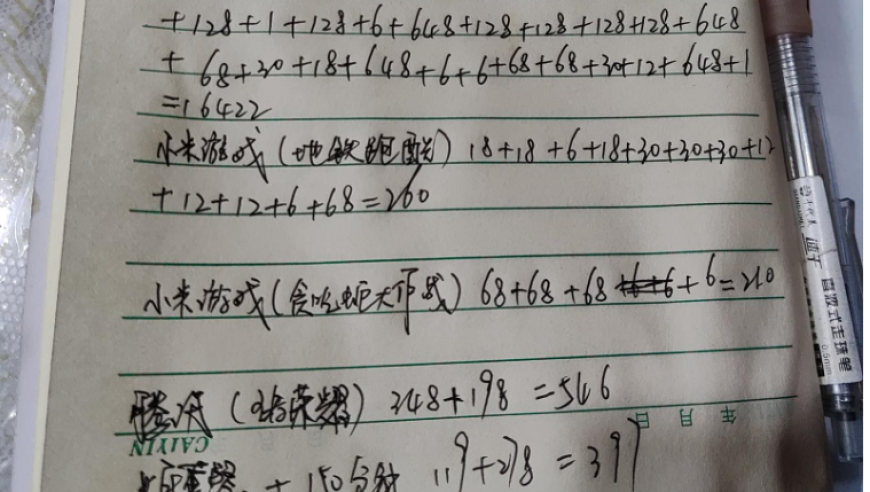 +128+1+128+6+648+128+128+128+128+648
+ 68+30+18+648+6+6+68+68+30+12+648+1
=16422
小米游戏(地铁跑酷) 18+18+6+18+30+30+30+12
+12+12+6+68=260
小米游戏(贪吃蛇大作战) 68+68+68+6=210
腾讯(王者荣耀) 348+198=546
年 月 日
CAIYIN
119+278=397
直液式走珠笔
0.5mm